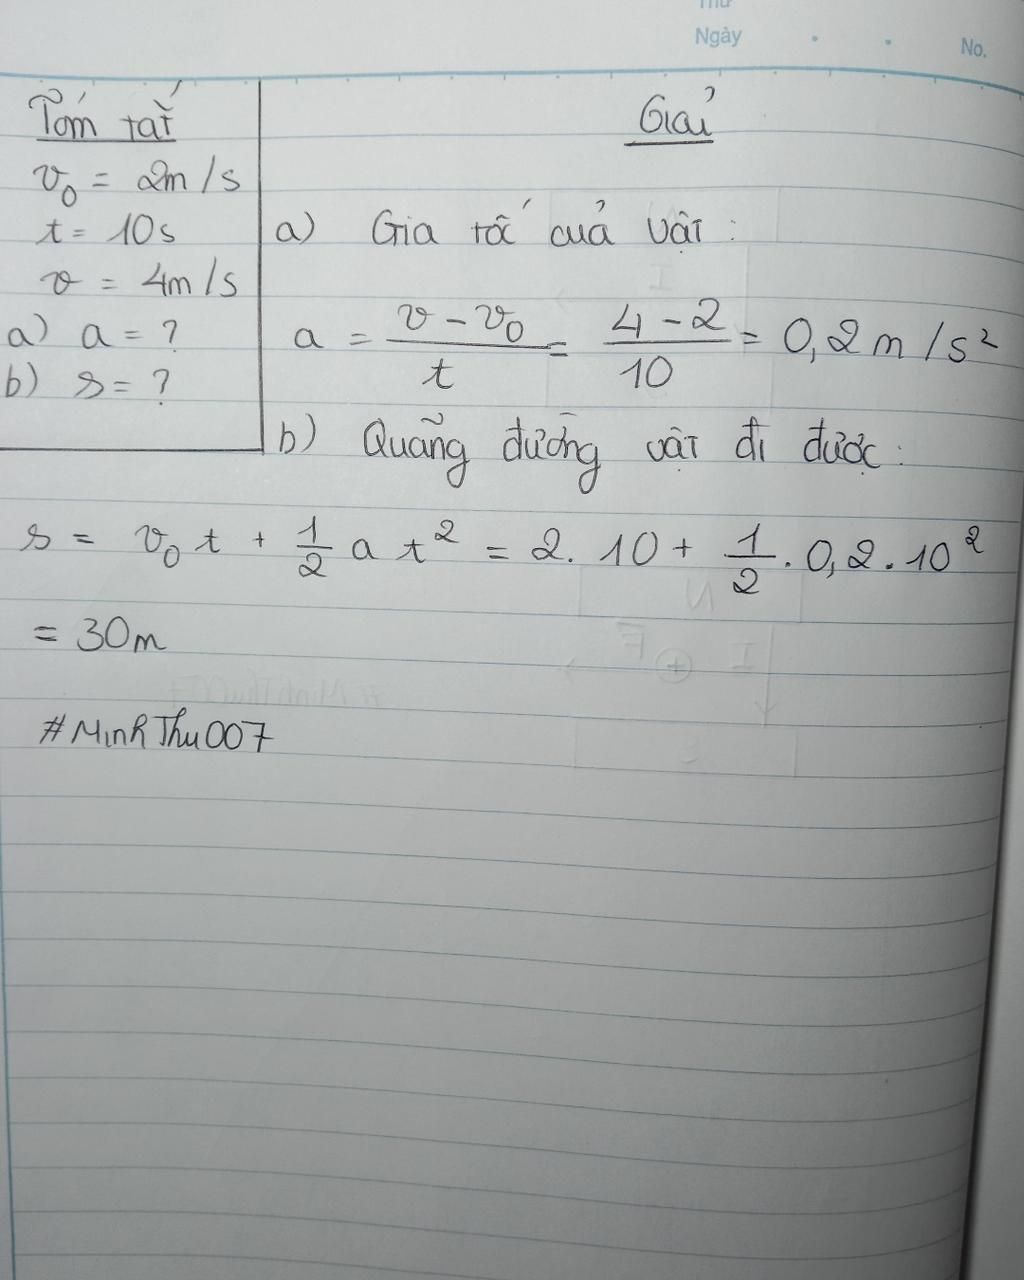 Thứ
Ngày
No.
Tóm tắt
v₀ = 2m/s
t = 10s
v = 4m/s
a) a = ?
b) s = ?
Giải
a) Gia tốc của vật:
a = (v - v₀)/t = (4 - 2)/10 = 0,2m/s²
b) Quãng đường vật đi được:
s = v₀t + 1/2 at² = 2. 10 + 1/2 . 0,2 . 10²
= 30m
#MinhThu007